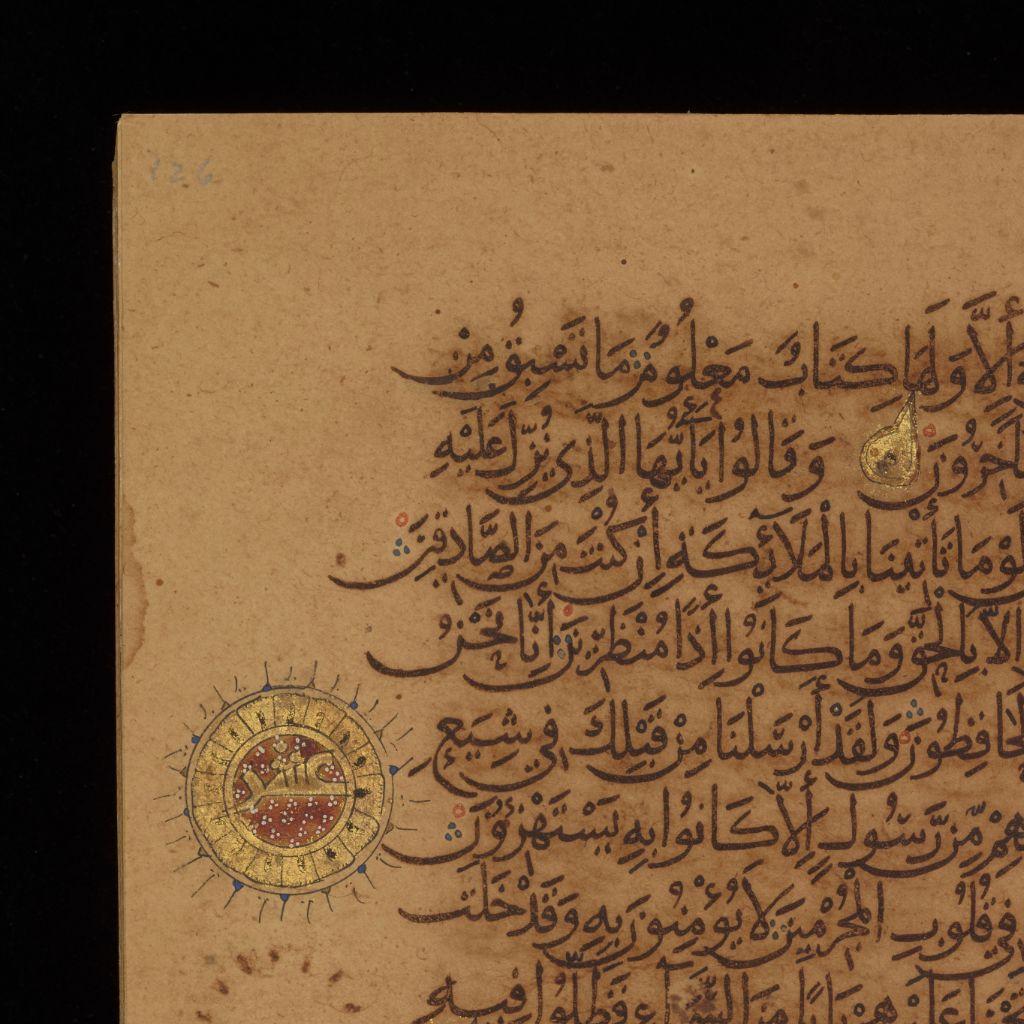 126
إِلَّا وَلَهَا كِتَابٌ مَعْلُومٌ مَا تَسْبِقُ مِنْ
وَقَالُوا يَا أَيُّهَا الَّذِي نُزِّلَ عَلَيْهِ
لَوْ مَا تَأْتِينَا بِالْمَلَائِكَةِ إِنْ كُنْتَ مِنَ الصَّادِقِينَ
إِلَّا بِالْحَقِّ وَمَا كَانُوا إِذًا مُنْظَرِينَ إِنَّا نَحْنُ
لَحَافِظُونَ وَلَقَدْ أَرْسَلْنَا مِنْ قَبْلِكَ فِي شِيَعِ
مِّن رَّسُولٍ إِلَّا كَانُوا بِهِ يَسْتَهْزِؤُونَ
فِي قُلُوبِ الْمُجْرِمِينَ لَا يُؤْمِنُونَ بِهِ وَقَدْ خَلَتْ
بَابًا مِنَ السَّمَاءِ فَظَلُّوا فِيهِ